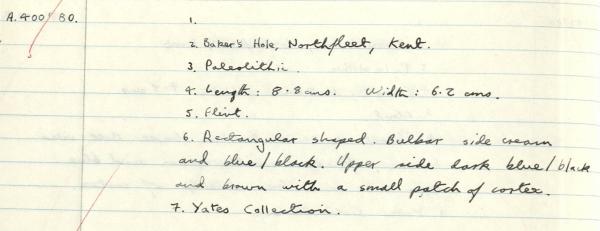 A.4001 80.
1.
2. Baker's Hole, Northfleet, Kent.
3. Paleolithic.
4. Length: 8.8 cms. Width: 6.2 cms.
5. Flint.
6. Rectangular shaped. Bulbar side cream
and blue/black. Upper side dark blue/black
and brown with a small patch of cortex.
7. Yates Collection.